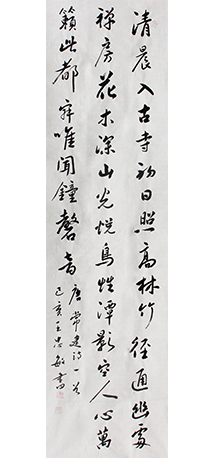 清晨入古寺初日照高林竹徑通幽處
禪房花木深山光悦鳥性潭影空人心萬
籟此都寂唯聞鐘磬音
唐常建詩一首
己亥王忠敏書